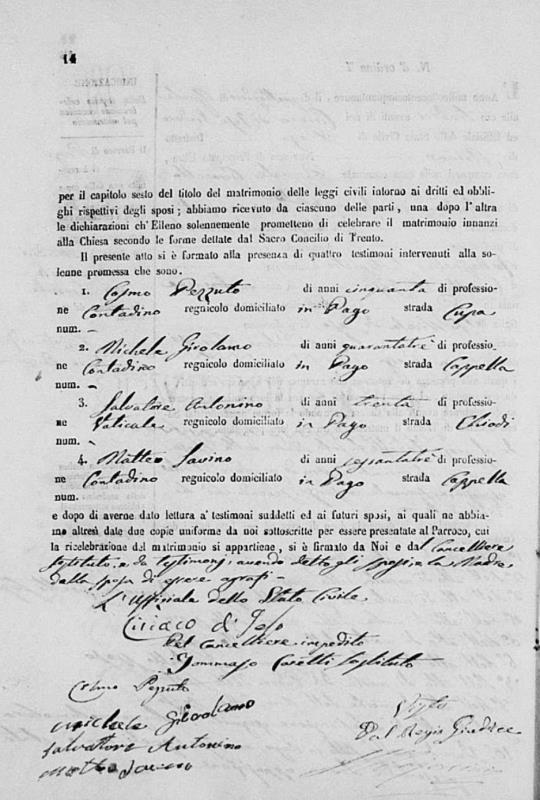 14
N. d'ordine 7
per il capitolo sesto del titolo del matrimonio delle leggi civili intorno ai dritti ed obbli-
ghi rispettivi degli sposi; abbiamo ricevuto da ciascuno delle parti, una dopo l'altra
le dichiarazioni ch'Elleno solennemente promettono di celebrare il matrimonio innanzi
alla Chiesa secondo le forme dettate dal Sacro Concilio di Trento.
Il presente atto si è formato alla presenza di quattro testimoni intervenuti alla so-
lenne promessa che sono.
1. Cosmo Pezzuto di anni cinquanta di professio-
ne Contadino regnicolo domiciliato in Pago strada Cupa
num. –
2. Michele Girolamo di anni quarantatre di professio-
ne Contadino regnicolo domiciliato in Pago strada Cappella
num. –
3. Salvatore Antonino di anni trenta di professio-
ne Vaticale regnicolo domiciliato in Pago strada Chiodi
num. –
4. Matteo Savino di anni sessantatre di professio-
ne Contadino regnicolo domiciliato in Pago strada Cappella
num.
e dopo di averne dato lettura a' testimoni suddetti ed ai futuri sposi, ai quali ne abbia-
mo altresì date due copie uniforme da noi sottoscritte per essere presentate al Parroco, cui
la ricelebrazione del matrimonio si appartiene, si è firmato da Noi e dal Cancelliere
Sostituto e da testimonj, avendo detto gli sposi e la Madre
della sposa di essere
L'Uffiziale dello Stato Civile
Ciriaco d'
Pel Cancelliere impedito
Tommaso Sostituto
Cosmo Pezuto
Michele Girolamo
Salvatore Antonino
Matteo Savino
Visto
Dal Regio Giudice